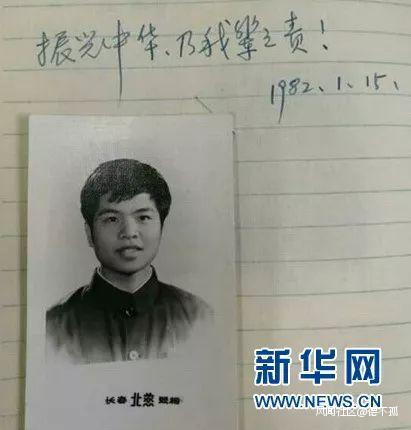 振兴中华、乃我辈之责！
1982.1.15.
长春 北燕 照相
新华网
WWW.NEWS.CN
风闻社区@德不孤